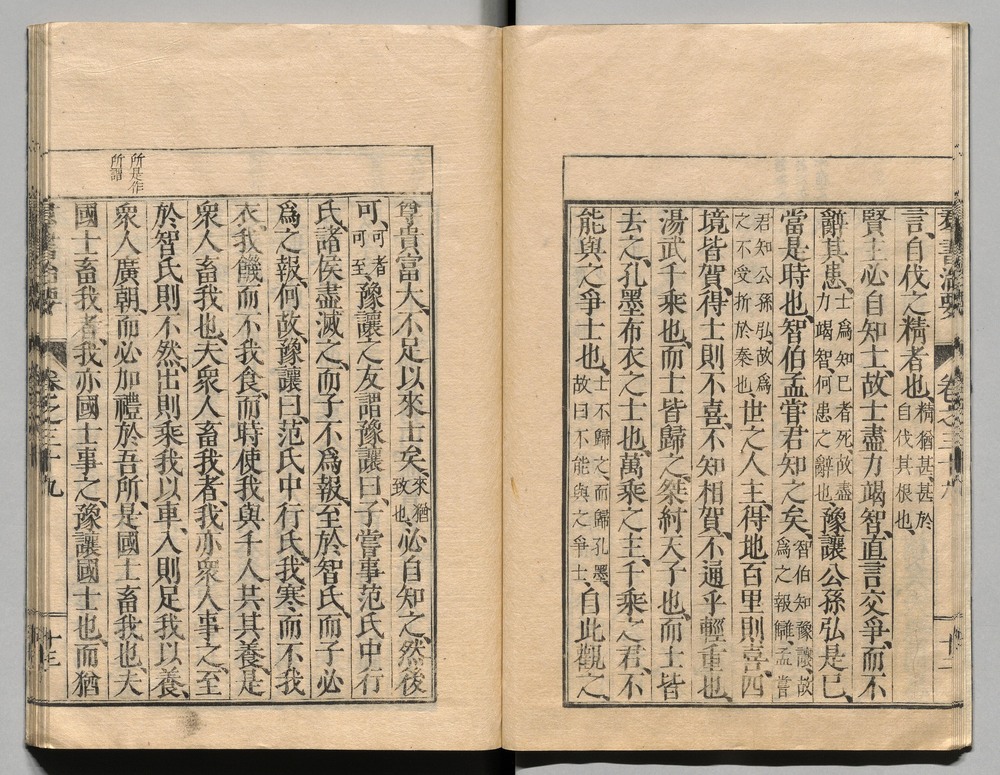 羣書治要 卷之三十九 十二
言、自伐之精者也、精猶甚、甚於自伐其根也、
賢主必自知士、故士盡力竭智、直言交爭、而不
辭其患、士爲知己者死、故盡力竭智、何患之辭也、豫讓公孫弘是已、
當是時也、智伯孟甞君知之矣、智伯知豫讓、故爲之報讎、孟甞
君知公孫弘、故爲之不受折於秦也、世之人主、得地百里則喜、四
境皆賀、得士則不喜、不知相賀、不通乎輕重也、
湯武千乘也、而士皆歸之、桀紂天子也、而士皆
去之、孔墨布衣之士也、萬乘之主、千乘之君、不
能與之爭士也、士不歸之、而歸孔墨、故曰不能與之爭士、自此觀之、
尊貴富大、不足以來士矣、來猶致也、必自知之、然後
可、可者可至、豫讓之友謂豫讓曰、子嘗事范氏中行
氏、諸侯盡滅之、而子不爲報、至於智氏、而子必
爲之報、何故、豫讓曰、范氏中行氏、我寒而不我
衣、我饑而不我食、而時使我與千人共其養、是
衆人畜我也、夫衆人畜我者、我亦衆人事之、至
於智氏則不然、出則乘我以車、入則足我以養、
所是作所謂
衆人廣朝、而必加禮於吾所、是國士畜我也、夫
國士畜我者、我亦國士事之、豫讓國士也、而猶
羣書治要 卷之三十九 十三